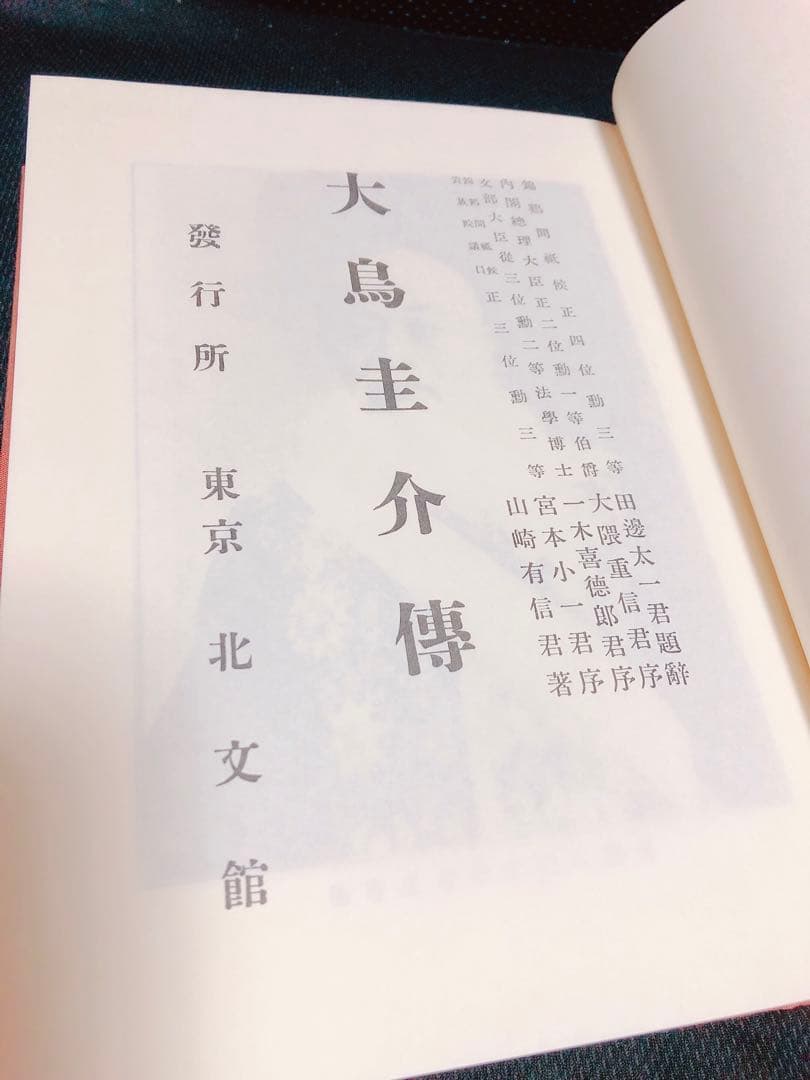 錦鷄間祗候正四位勳三等 田邊太一君題辭
內閣總理大臣正二位勳一等伯爵 大隈重信君序
文部大臣從三位勳二等法學博士 一木喜德郎君序
錦鷄間祗候
貴族院議員
正三位勳三等 宮本小一君序
山崎有信君著
大鳥圭介傳
發行所 東京 北文館